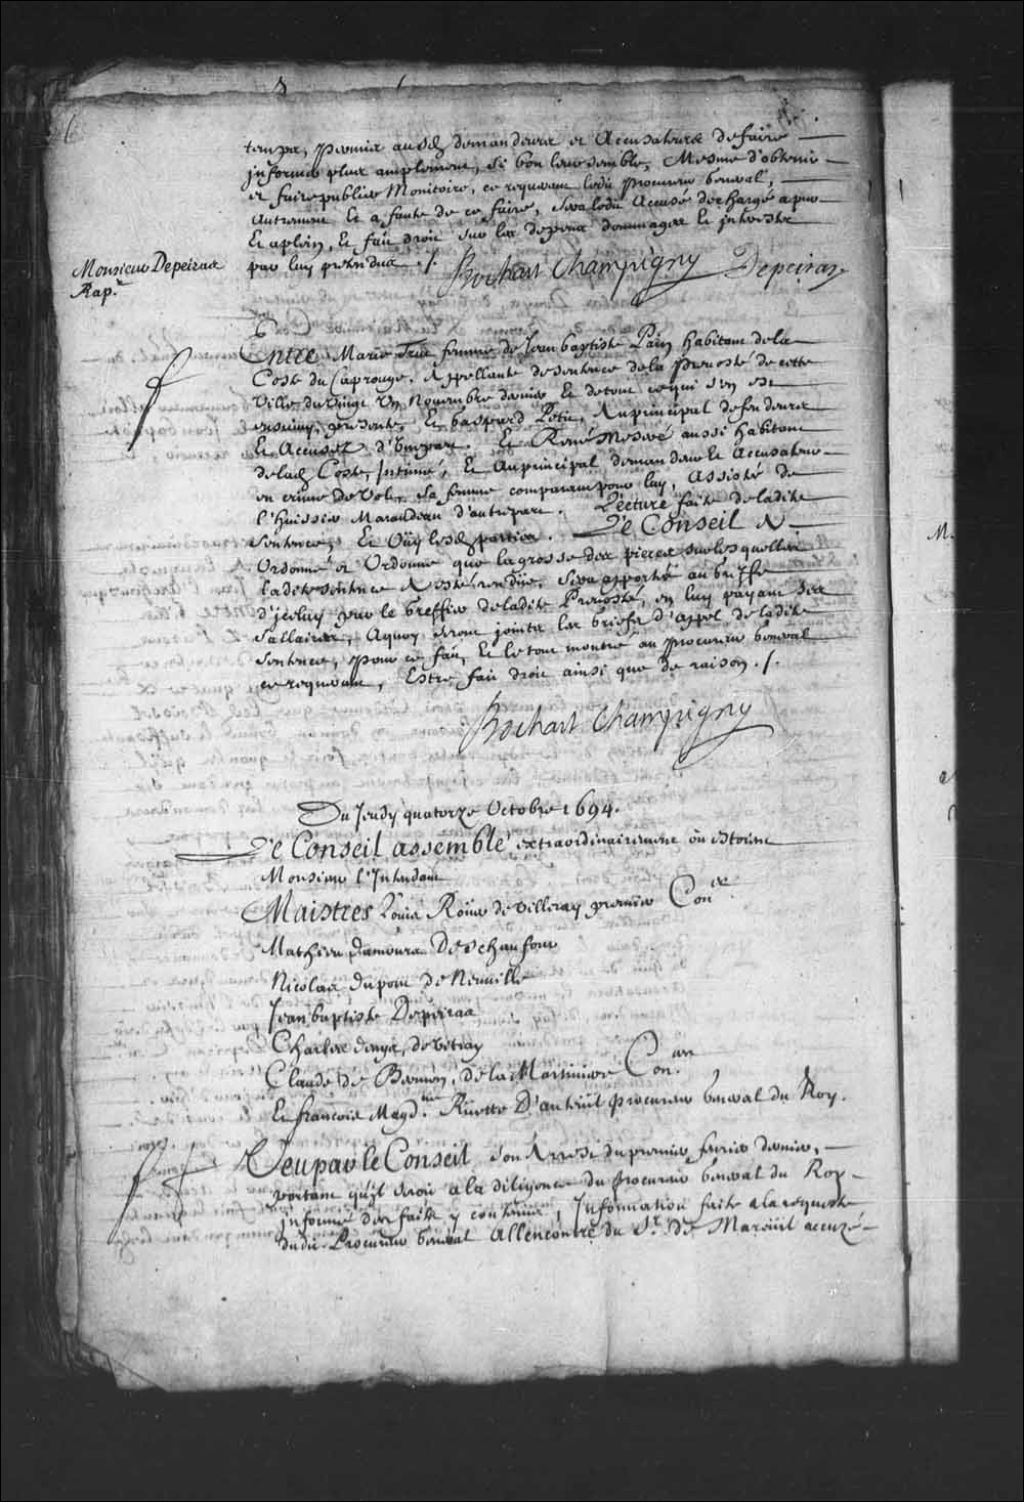 temps, permis ausd. demandeurs et Accusateurs de faire
informer plus amplement, si bon leur semble, Mesme d'obtenir
et faire publier Monitoire, ce requerant ledit Procureur General,
autrement et a faute de ce faire, sera ledit Accusé deschargé a pur
Et a plein, Et fait droit sur les depens dommages Et interests
par luy pretendus ./.
Monsieur Depeiras
Rap.r
Bochart Champigny Depeiras
Entre Marie femme de Jean baptiste Pain habitant de la
Coste du Caprouge, Appellante de sentence de la Prevosté de cette
Ville du vingt un Novembre dernier Et de tout ce qui s'en est
ensuivy, presente, Et Gaspard Petit, Au principal defendeurs
Et Accusez d'Unepart. Et René Meseré aussi habitant
de lad. Coste, Intimé, Et Au principal demandeur Et Accusateur
en crime de Vol, sa femme comparant pour luy, Assistée de
l'huissier Marandeau d'autrepart. Lecture faite de ladite
Sentence, Et Oüy lesd. parties. Le Conseil A
Ordonné et Ordonne que la grosse des pieces sur lesquelles
ladite sentence A esté rendüe, sera apportée au Greffe
d'iceluy par le Greffier de ladite Prevosté, en luy payant ses
Sallaires, Aquoy seront joints les briefs d'appel de ladite
Sentence, pour ce fait, Et le tout montré au Procureur General
ce requerant, Estre fait droit ainsi que de raison ./.
Bochart Champigny
Du Jeudy quatorze Octobre 1694.
Le Conseil assemblé extraordinairement où estoient
Monsieur l'Intendant
Maistres Louis Roüer de Villeray premier Con.er
Mathieu Damours Deschaufour
Nicolas Dupont de Neuville
Jean baptiste Depeiras
Charles Denys, de Vitray
Claude De Bermen, de la Martiniere Con.ers
Et françois Magd.ne Rüette D'auteüil Procureur General du Roy.
Veu par le Conseil son Arrest du premier fevrier dernier,
portant qu'il seroit a la diligence du Procureur General du Roy
informé des faits y contenus, Information faite a la requeste
dudit Procureur General Allencontre du Sr. De Mareüil accusé